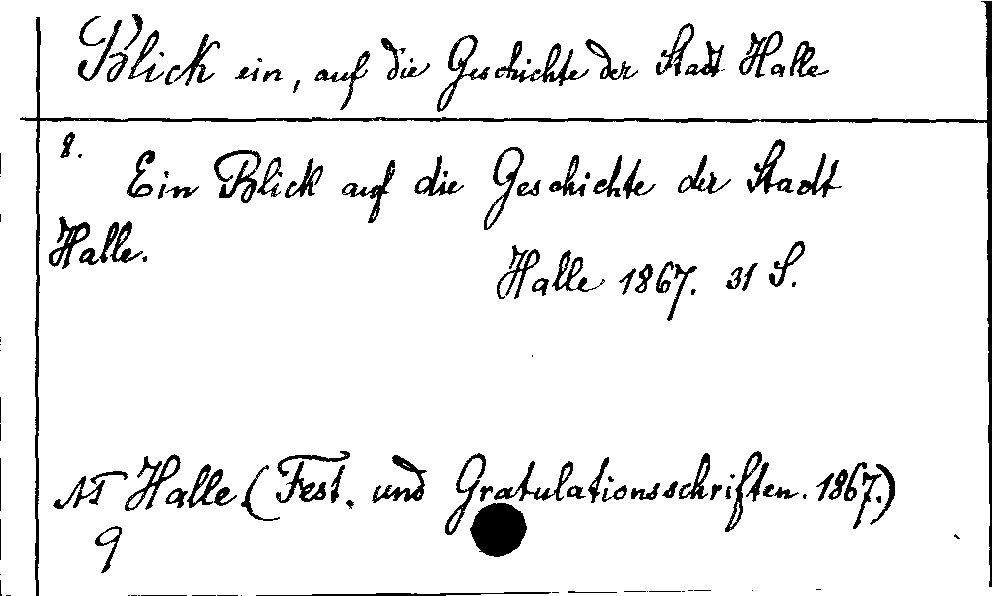 Blick ein, auf die Geschichte der Stadt Halle
8.
Ein Blick auf die Geschichte der Stadt
Halle.
Halle 1867. 31 S.
AT Halle. (Fest. und Gratulationsschriften. 1867.)
9